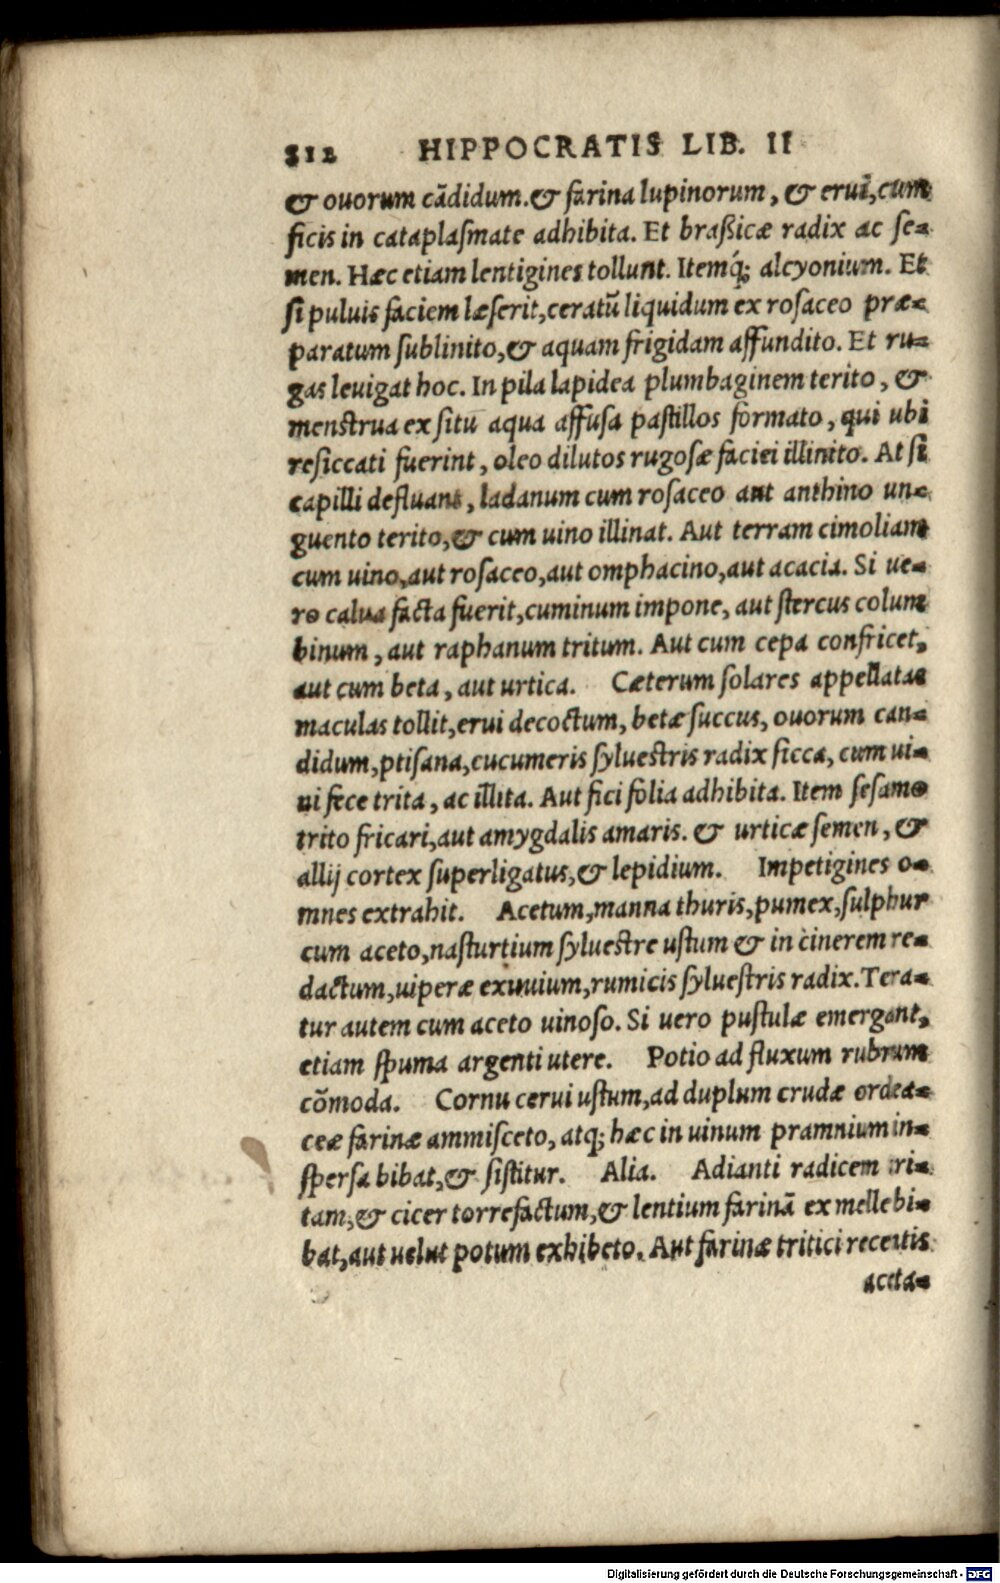 312 HIPPOCRATIS LIB. II
& ouorum cãdidum. & farina lupinorum, & erui, cum
ficis in cataplasmate adhibita. Et braßicæ radix ac se-
men. Hæc etiam lentigines tollunt. Itemq́; alcyonium. Et
si puluis faciem læserit, ceratũ liquidum ex rosaceo præ-
paratum sublinito, & aquam frigidam affundito. Et ru-
gas leuigat hoc. In pila lapidea plumbaginem terito, &
menstrua ex situ aqua affusa pastillos formato, qui ubi
resiccati fuerint, oleo dilutos rugosæ faciei illinito. At si
capilli defluant, ladanum cum rosaceo aut anthino un-
guento terito, & cum uino illinat. Aut terram cimoliam
cum uino, aut rosaceo, aut omphacino, aut acacia. Si ue-
ro calua facta fuerit, cuminum impone, aut stercus colum
binum, aut raphanum tritum. Aut cum cepa confricet,
aut cum beta, aut urtica. Cæterum solares appellatas
maculas tollit, erui decoctum, betæ succus, ouorum can-
didum, ptisana, cucumeris syluestris radix sicca, cum ui-
ni fece trita, ac illita. Aut fici folia adhibita. Item sesamo
trito fricari, aut amygdalis amaris. & urticæ semen, &
allij cortex superligatus, & lepidium. Impetigines o-
mnes extrahit. Acetum, manna thuris, pumex, sulphur
cum aceto, nasturtium syluestre ustum & in cinerem re-
dactum, uiperæ exuuium, rumicis syluestris radix. Tera-
tur autem cum aceto uinoso. Si uero pustulæ emergant,
etiam spuma argenti utere. Potio ad fluxum rubrum
cõmoda. Cornu cerui ustum, ad duplum crudæ ordea-
ceæ farinæ ammisceto, atq; hæc in uinum pramnium in-
spersa bibat, & sistitur. Alia. Adianti radicem tri-
tam, & cicer torrefactum, & lentium farinã ex melle bi-
bat, aut uelut potum exhibeto. Aut farinæ tritici recentis
aceta-
Digitalisierung gefördert durch die Deutsche Forschungsgemeinschaft - DFG